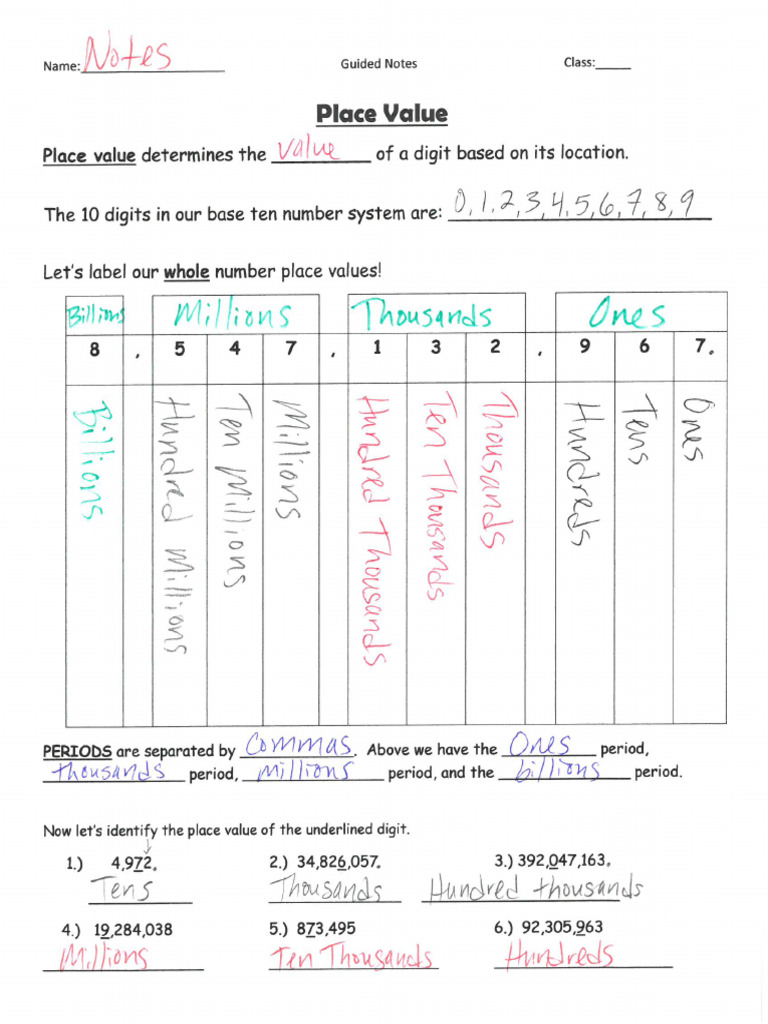 Name: Notes Guided Notes Class:_____
Place Value
Place value determines the value of a digit based on its location.
The 10 digits in our base ten number system are: 0,1,2,3,4,5,6,7,8,9
Let's label our whole number place values!
Billions Millions Thousands Ones
8 , 5 4 7 , 1 3 2 , 9 6 7.
Billions
Hundred Millions
Ten Millions
Millions
Hundred Thousands
Ten Thousands
Thousands
Hundreds
Tens
Ones
PERIODS are separated by Commas. Above we have the Ones period,
thousands period, millions period, and the billions period.
Now let's identify the place value of the underlined digit.
1.) 4,972. 2.) 34,826,057. 3.) 392,047,163.
Tens Thousands Hundred thousands
4.) 19,284,038 5.) 873,495 6.) 92,305,963
Millions Ten Thousands Hundreds